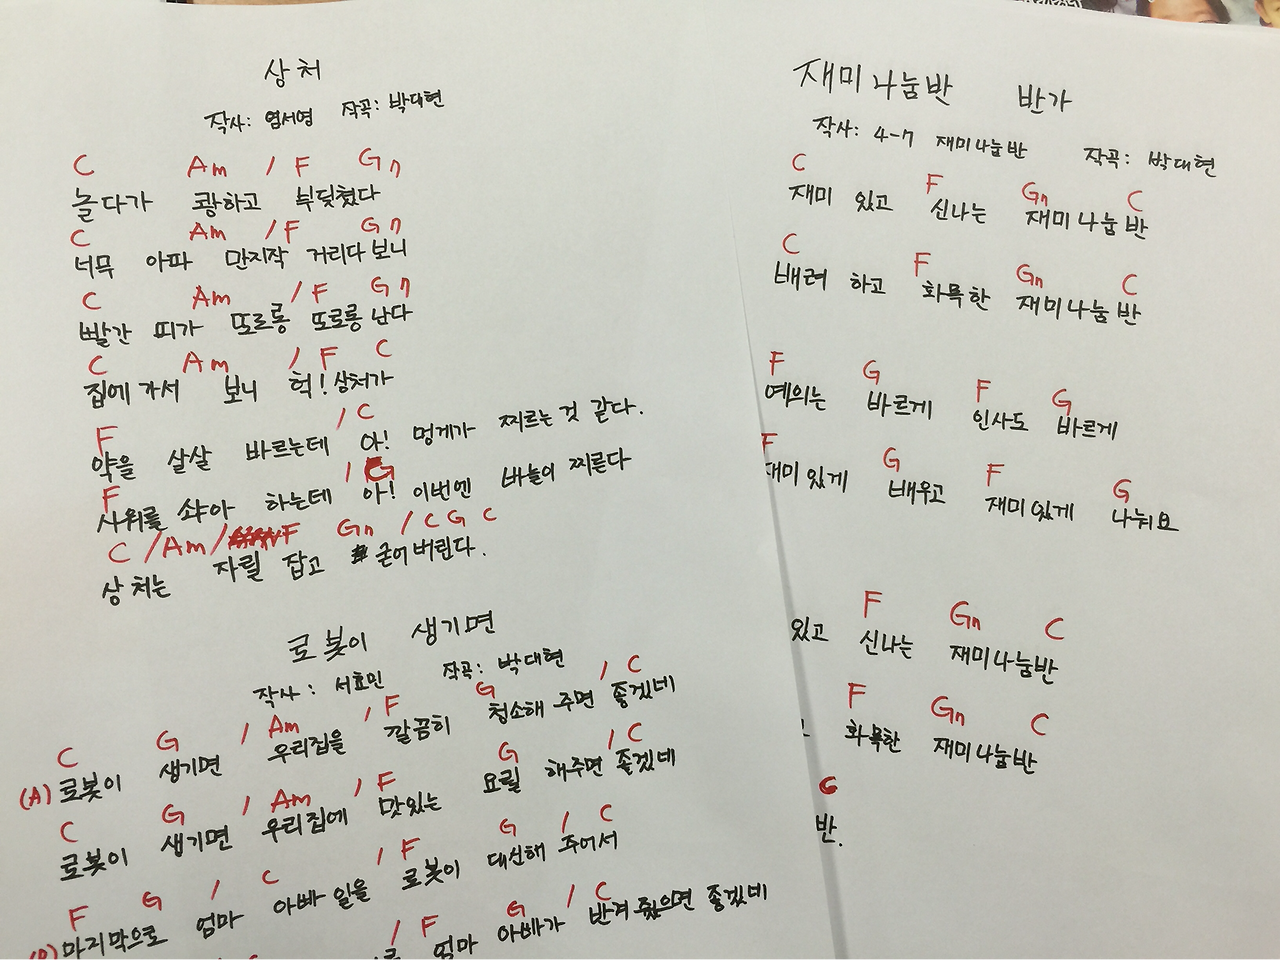 상처
작사: 엄서영 작곡: 박대현
C Am / F G7
놀다가 쾅하고 부딪쳤다
C Am / F G7
너무 아파 만지작 거리다 보니
C Am / F G7
빨간 띠가 또르릉 또로롱 난다
C Am / F C
집에 가서 보니 헉! 상처가
F / C
약을 살살 바르는데 아! 멍게가 찌르는 것 같다.
F / G
사위를 솨아 하는데 아! 이번엔 바늘이 찌른다
C / Am / F G7 / C G C
상처는 자릴 잡고 굳어버린다.
로봇이 생기면
작사: 서효민 작곡: 박대현
C G / Am / F G / C
(A) 로봇이 생기면 우리집을 깔끔히 청소해 주면 좋겠네
C G / Am / F G / C
로봇이 생기면 우리집에 맛있는 요릴 해주면 좋겠네
F G / C / F G / C
마지막으로 엄마 아빠 일을 로봇이 대신해 주어서
/ F G / C
엄마 아빠가 반겨 줬으면 좋겠네
재미나눔반 반가
작사: 4-7 재미나눔반 작곡: 박대현
C F G7 C
재미 있고 신나는 재미나눔반
C F G7 C
배려 하고 화목한 재미나눔반
F G F G
예의는 바르게 인사도 바르게
F G F G
재미있게 배우고 재미있게 나눠요
F G7 C
있고 신나는 재미나눔반
F G7 C
화목한 재미나눔반
G
반.